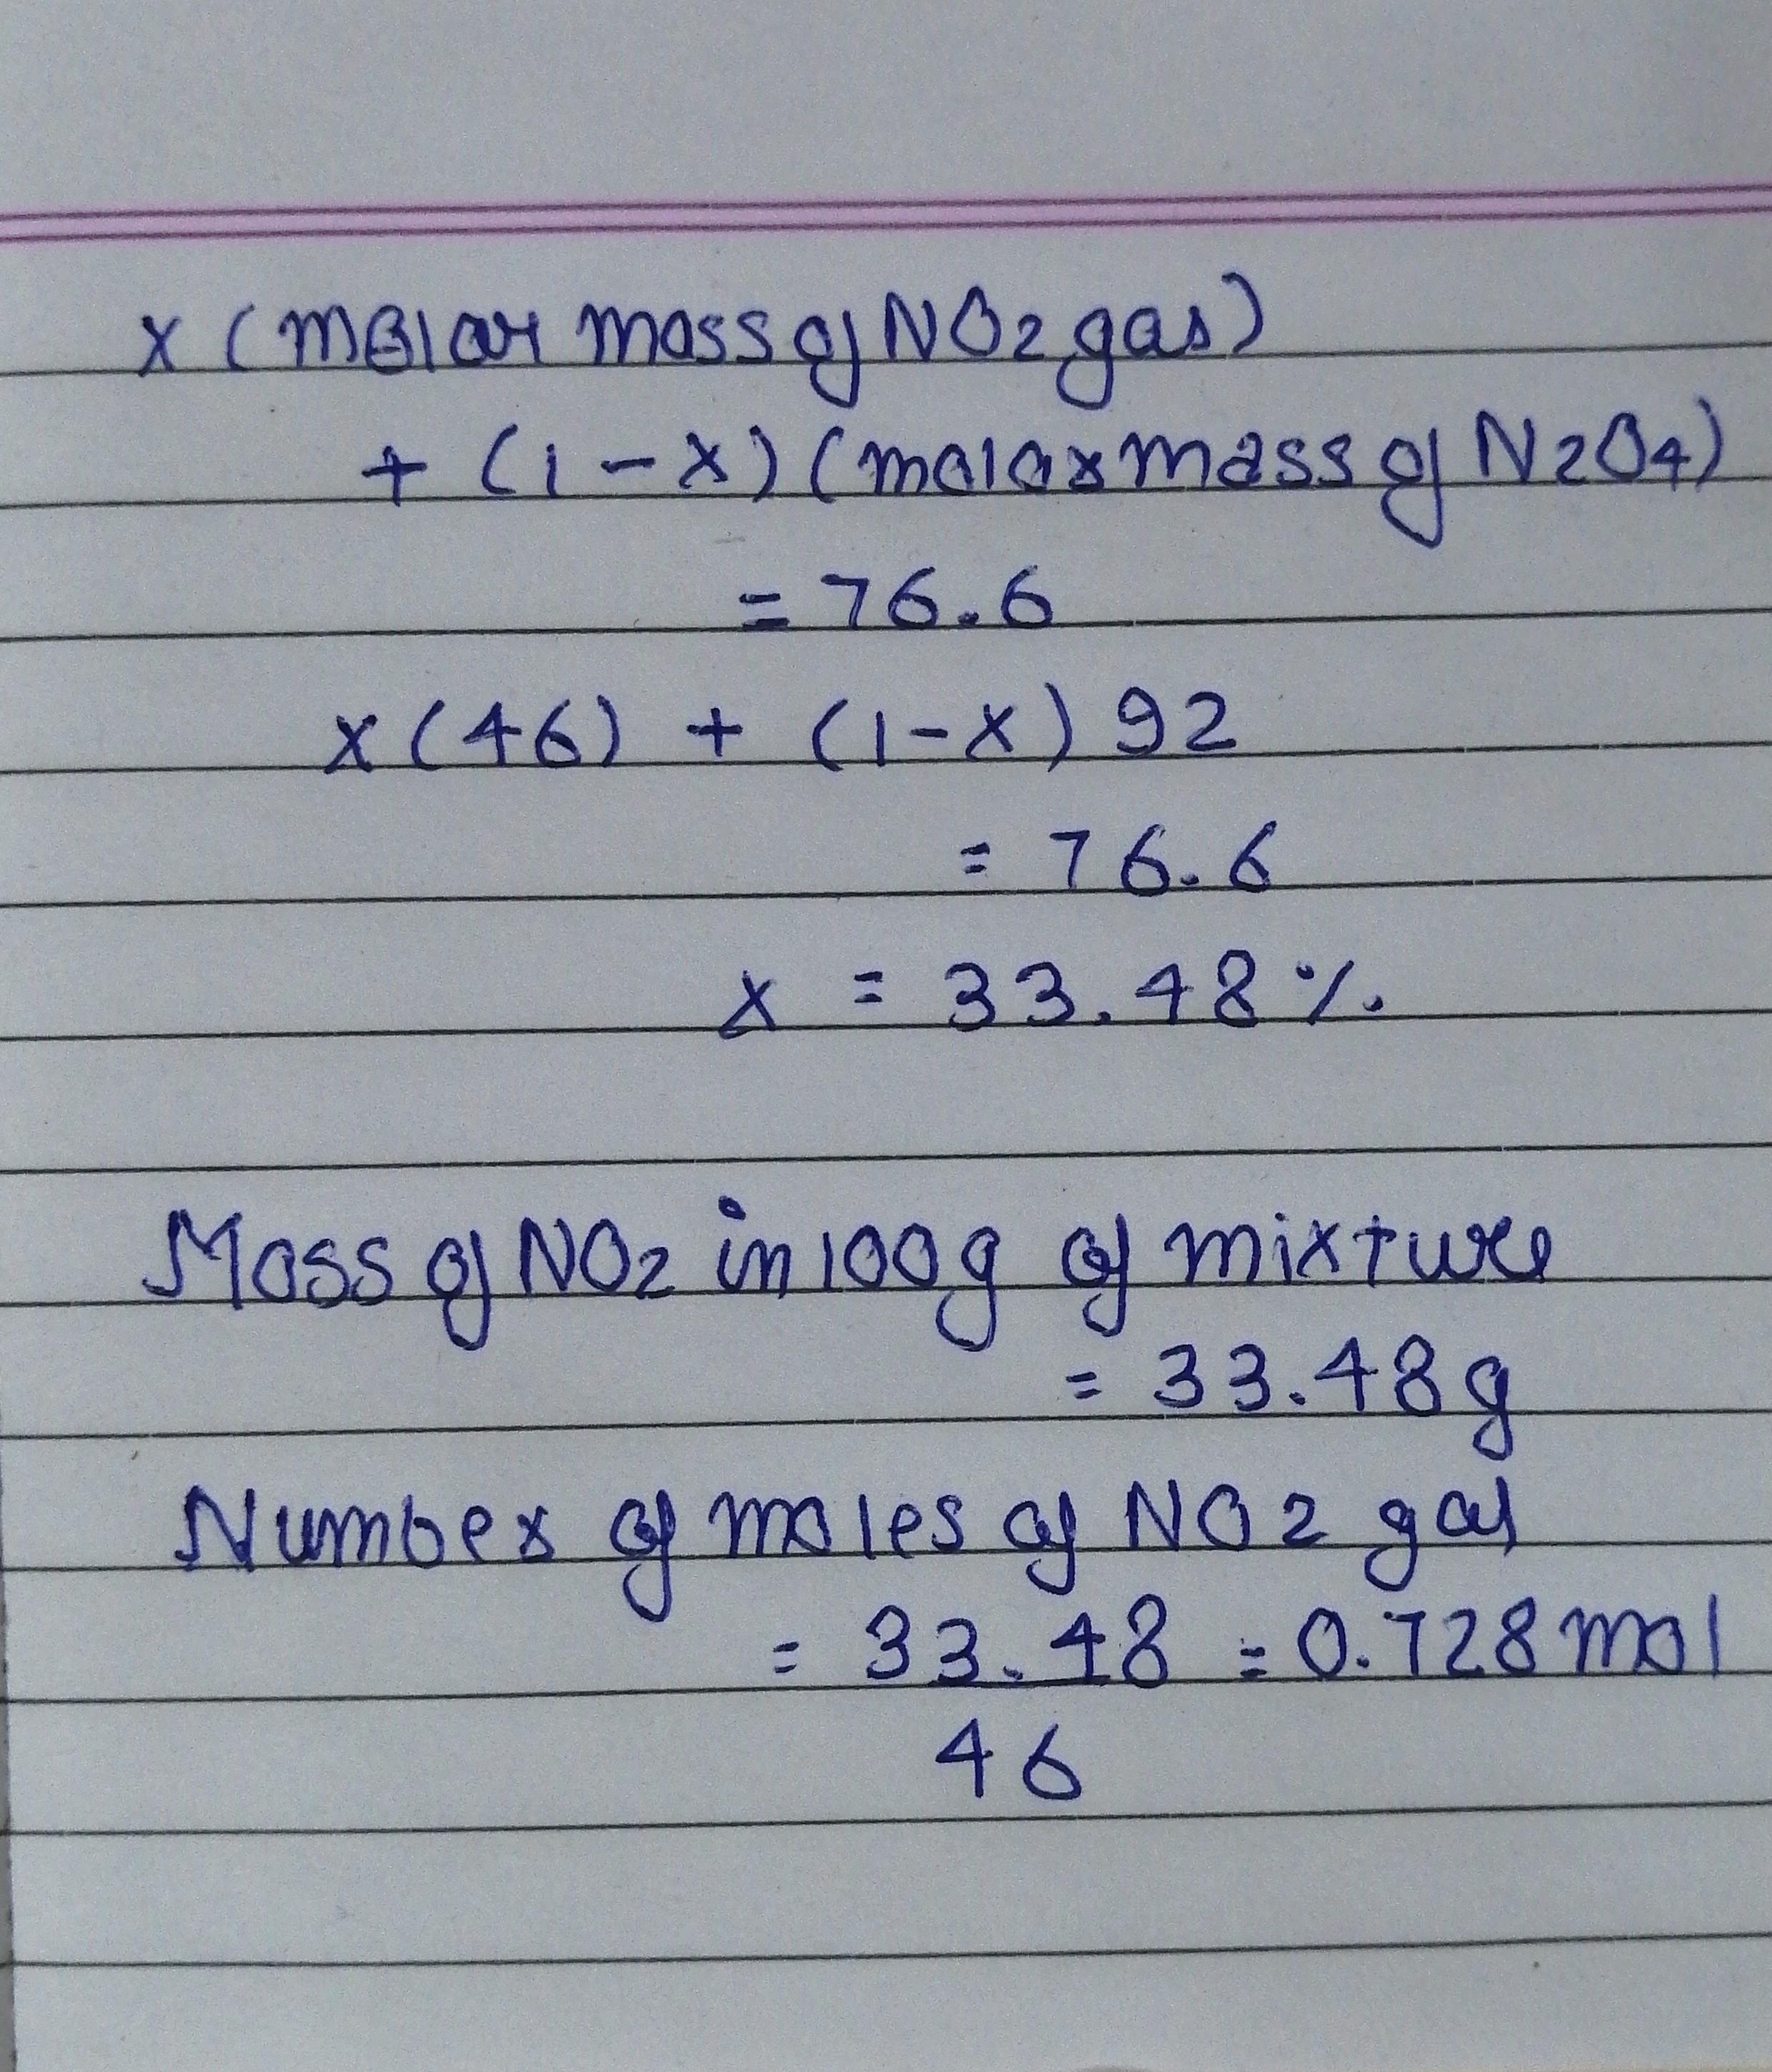 x (molar mass of NO2 gas)
+ (1-x) (molar mass of N2O4)
= 76.6
x (46) + (1-x) 92
= 76.6
x = 33.48 %.
Mass of NO2 in 100g of mixture
= 33.48g
Number of moles of NO2 gas
= 33.48 = 0.728 mol
46